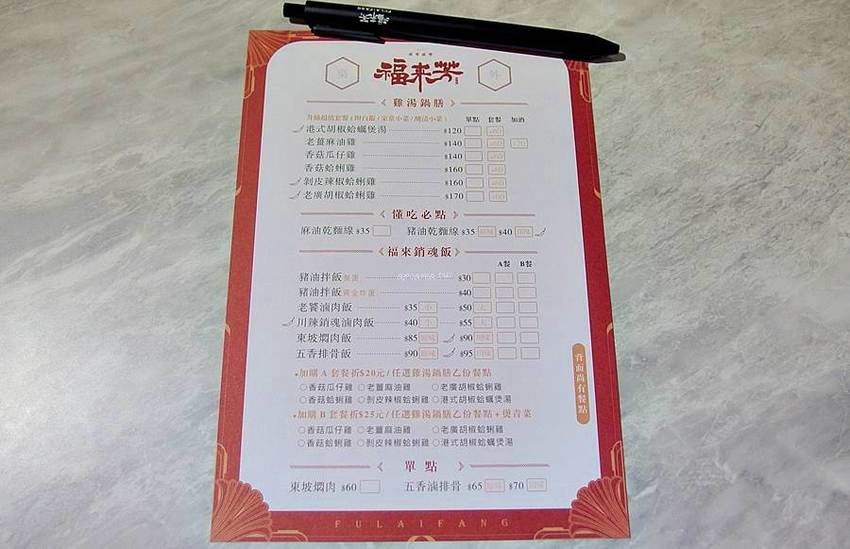 福來芳
福來芳
雞湯鍋膳
單點 套餐 加酒
港式胡椒蛤蠣煲湯 $120 +60
老薑麻油雞 $140 +60 +70
香菇瓜仔雞 $140 +60
香菇蛤蜊雞 $160 +60
剝皮辣椒蛤蜊雞 $160 +60
老廣胡椒蛤蜊雞 $170 +60
懂吃必點
麻油乾麵線 $35 豬油乾麵線 $35 原味 $40
福來銷魂飯
A餐 B餐
豬油拌飯 $30
豬油拌飯 黃金炸蛋 $40
老饕滷肉飯 $35 小 $50 大
川辣銷魂滷肉飯 $40 小 $55 大
東坡燜肉飯 $85 原味 $90
五香排骨飯 $90 原味 $95
背面尚有餐點
加購 A 套餐折$20元/任選雞湯鍋膳乙份餐點
香菇瓜仔雞 老薑麻油雞 老廣胡椒蛤蜊雞
香菇蛤蜊雞 剝皮辣椒蛤蜊雞 港式胡椒蛤蠣煲湯
加購 B 套餐折$25元/任選雞湯鍋膳乙份餐點+燙青菜
香菇瓜仔雞 老薑麻油雞 老廣胡椒蛤蜊雞
香菇蛤蜊雞 剝皮辣椒蛤蜊雞 港式胡椒蛤蠣煲湯
單點
東坡燜肉 $60 五香滷排骨 $65 原味 $70
FULAIFANG